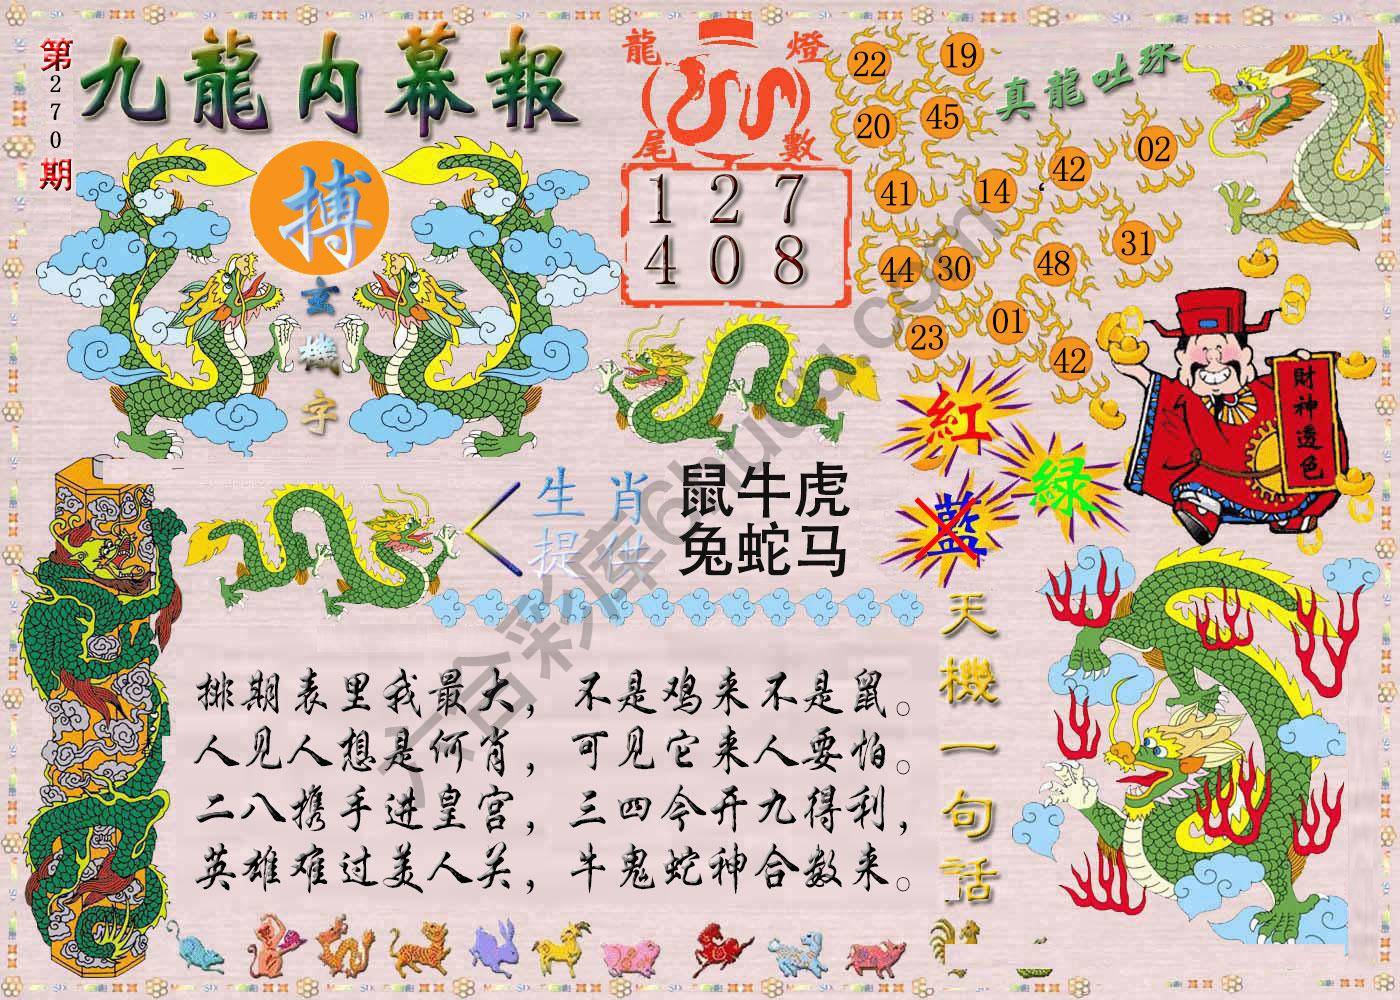 第270期
九龍內幕報
搏
玄機字
龍燈
尾數
1 2 7
4 0 8
真龍吐珠
22 19
20 45
41 14 42 02
44 30 48 31
23 01 42
財神透色
紅
綠
藍
生肖
提供
鼠牛虎
兔蛇马
天機一句話
排期表里我最大，不是鸡来不是鼠。
人见人想是何肖，可见它来人要怕。
二八携手进皇宫，三四今开九得利，
英雄难过美人关，牛鬼蛇神合数来。
六合彩库6huck.com